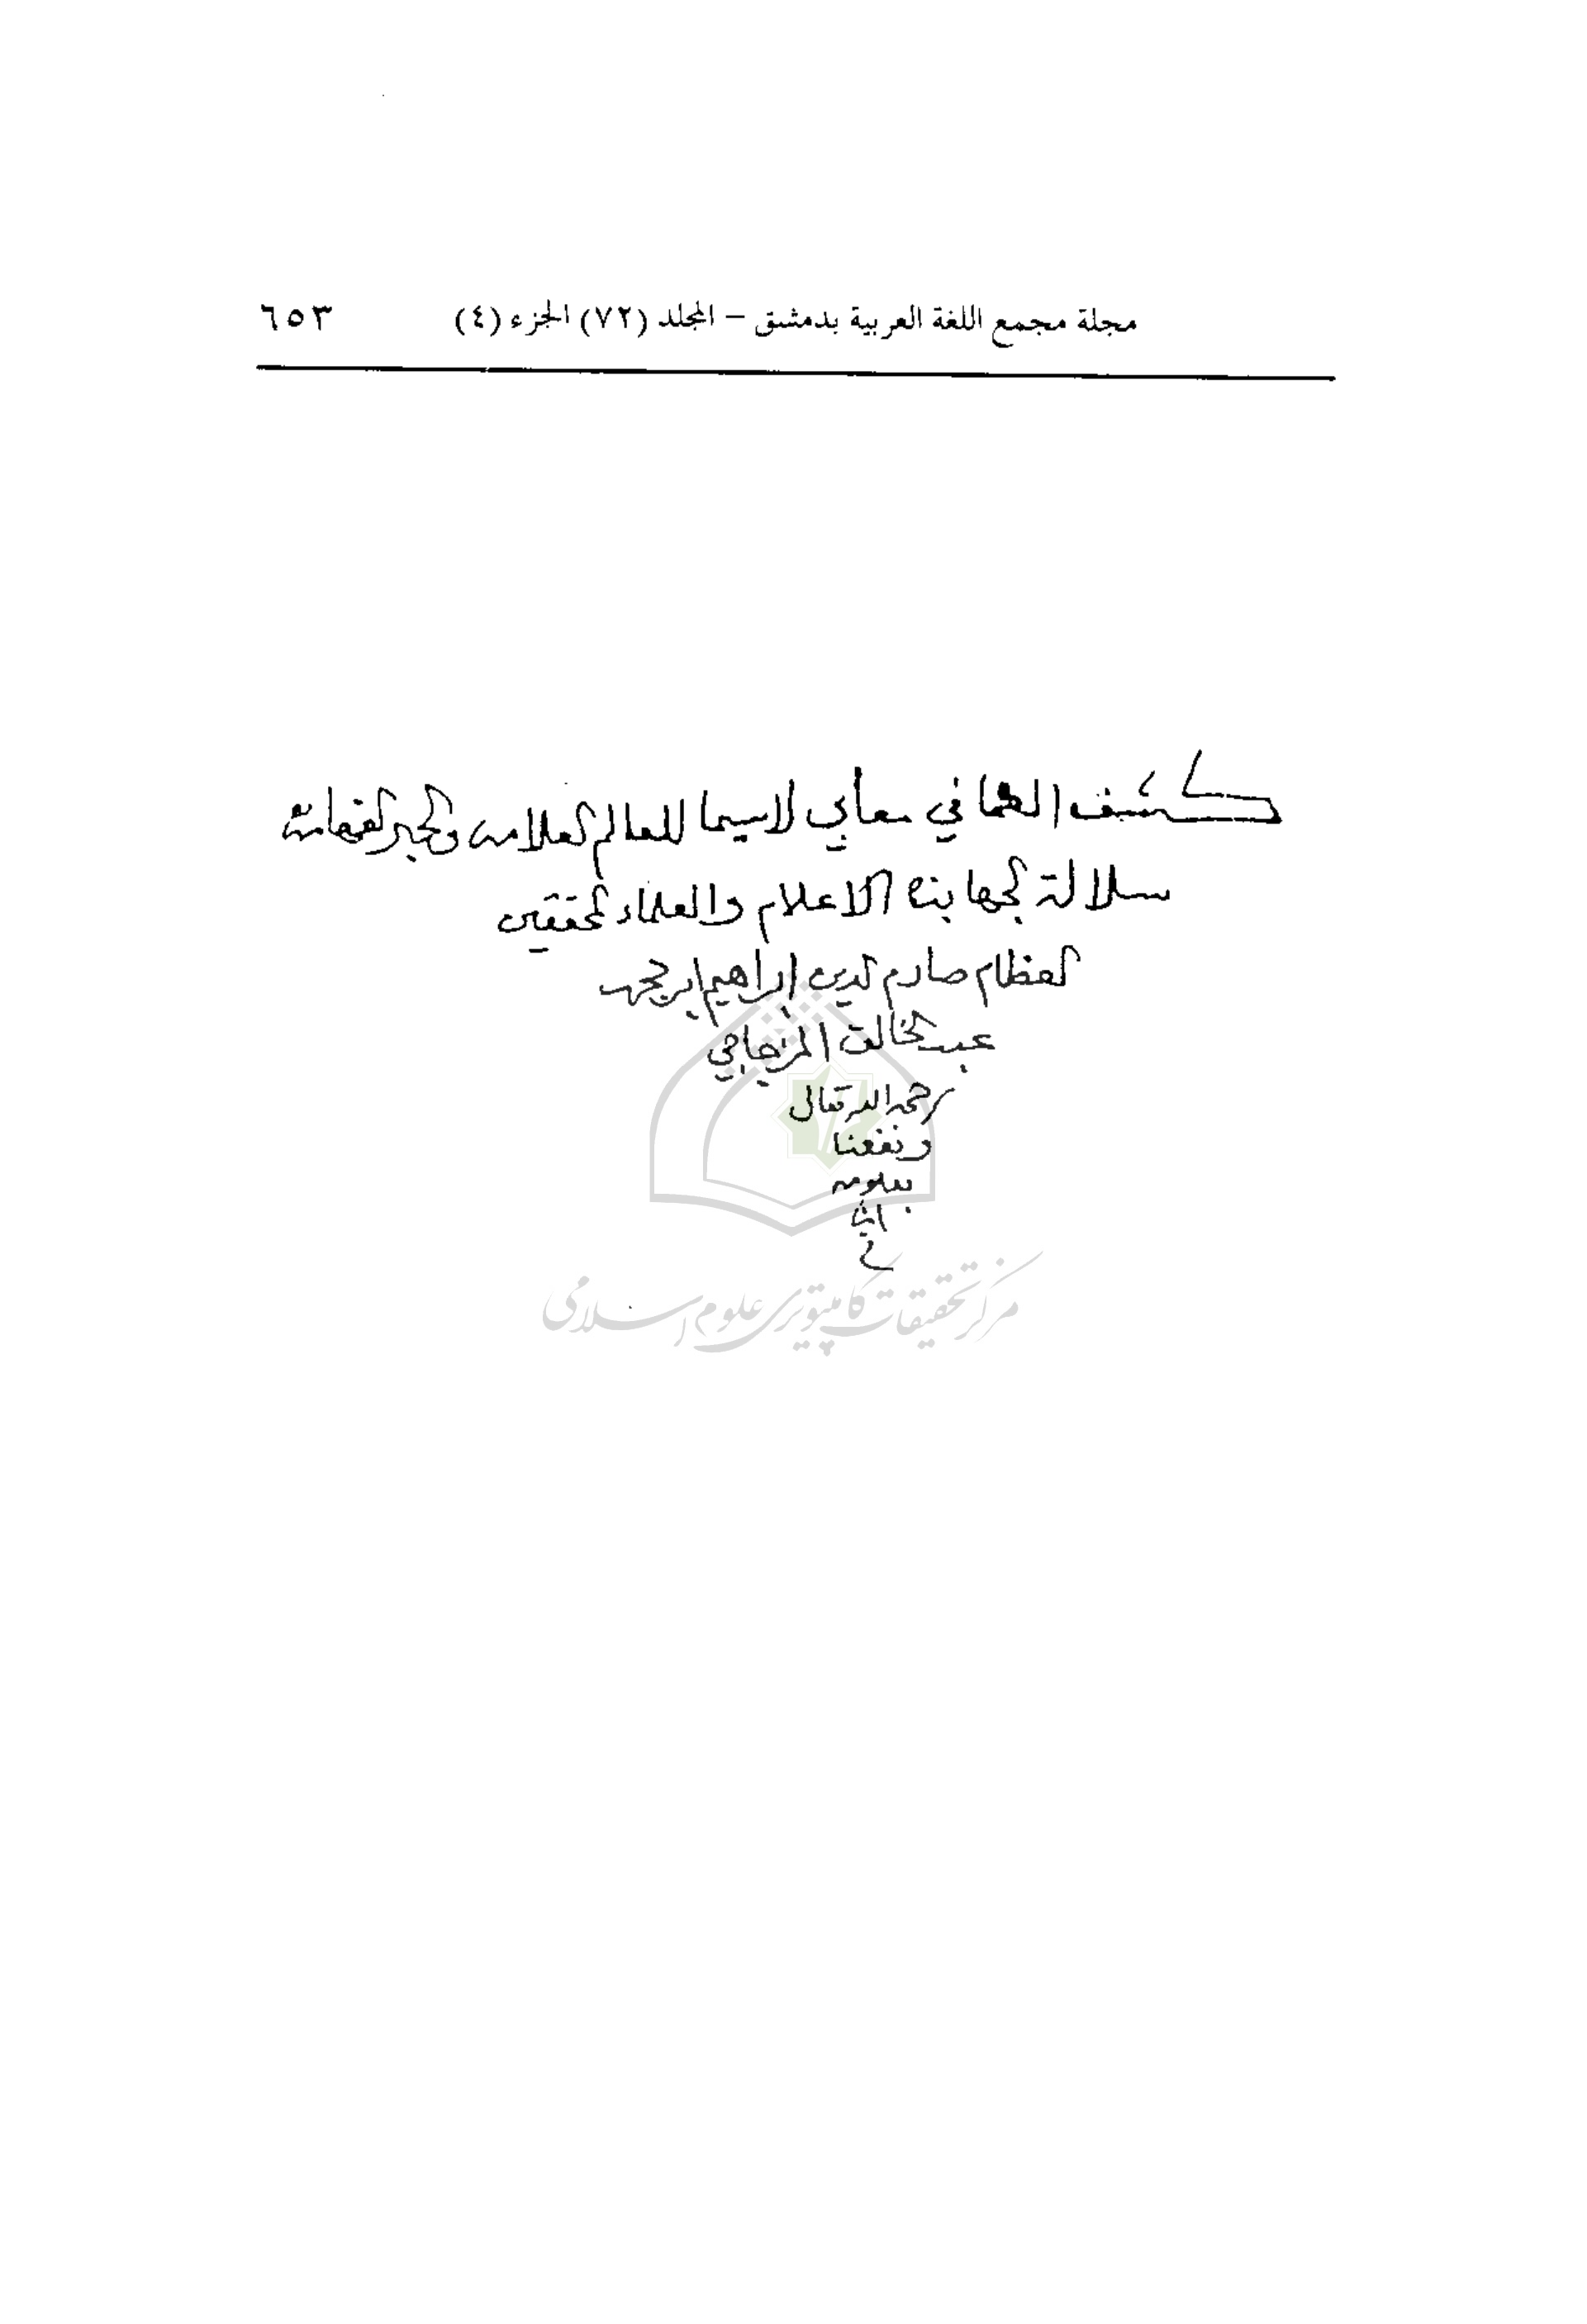 مجلة مجمع اللغة العربية بدمشق – المجلد (٧٢) الجزء (٤) ٦٥٣
كشف الغما في معاني لاسيما للعالم العلامه والحبر الفهامة
سلالة الجهابذه الاعلام والعلماء المحققين
العظام صارم الدين ابراهيم بن محمد
عبد الخالق المزجاجي
رحمه الله تعالى
ونفعنا
بعلومه
امين
مركز تحقیقات کامپیوتری علوم اسلامی